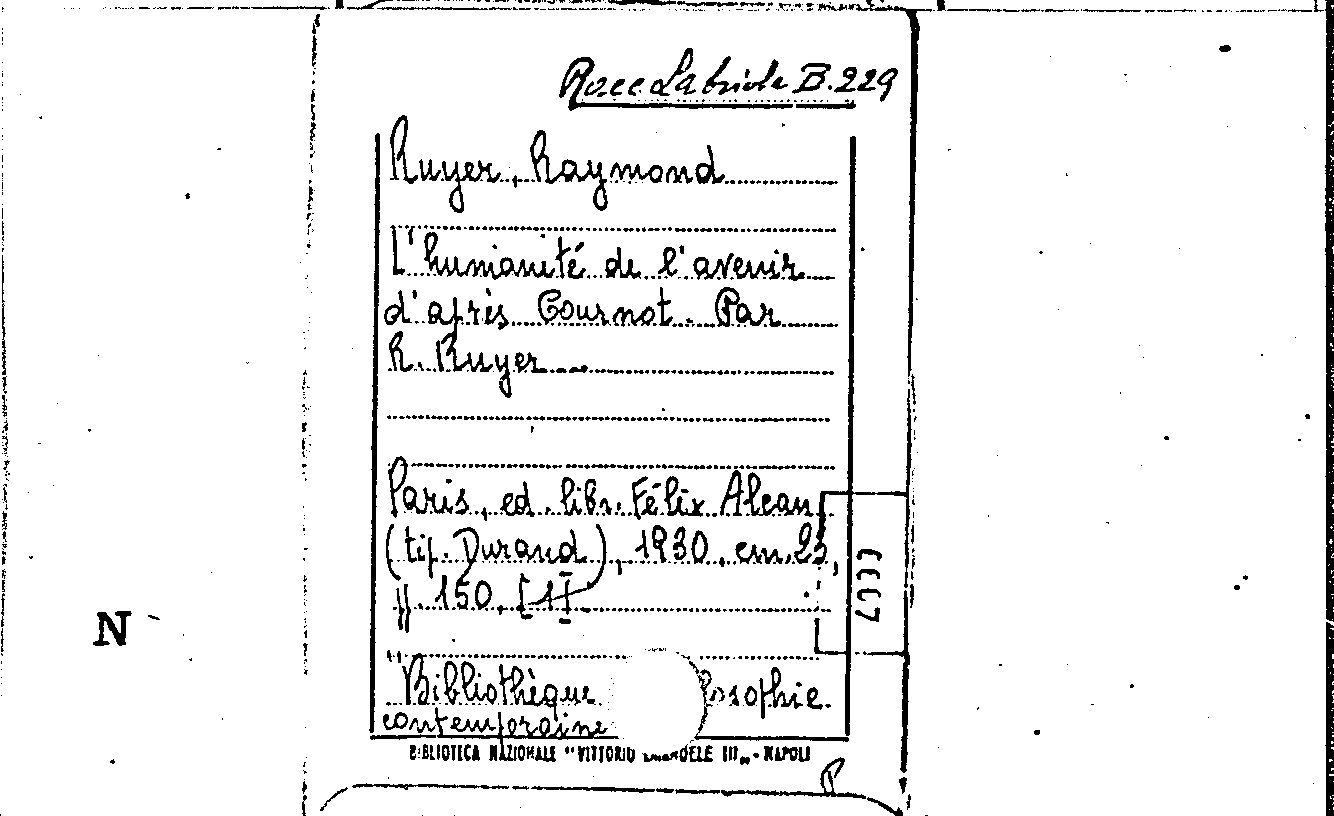 Racc Labriola B.229
Ruyer, Raymond
L'humanité de l'avenir
d'après Cournot. Par
R. Ruyer
Paris, ed. libr. Félix Alcan
(tip. Durand), 1930, cm. 25,
pp. 150, [1].
"Bibliothèque
contemporaine
BIBLIOTECA NAZIONALE "VITTORIO III„ - NAPOLI
N